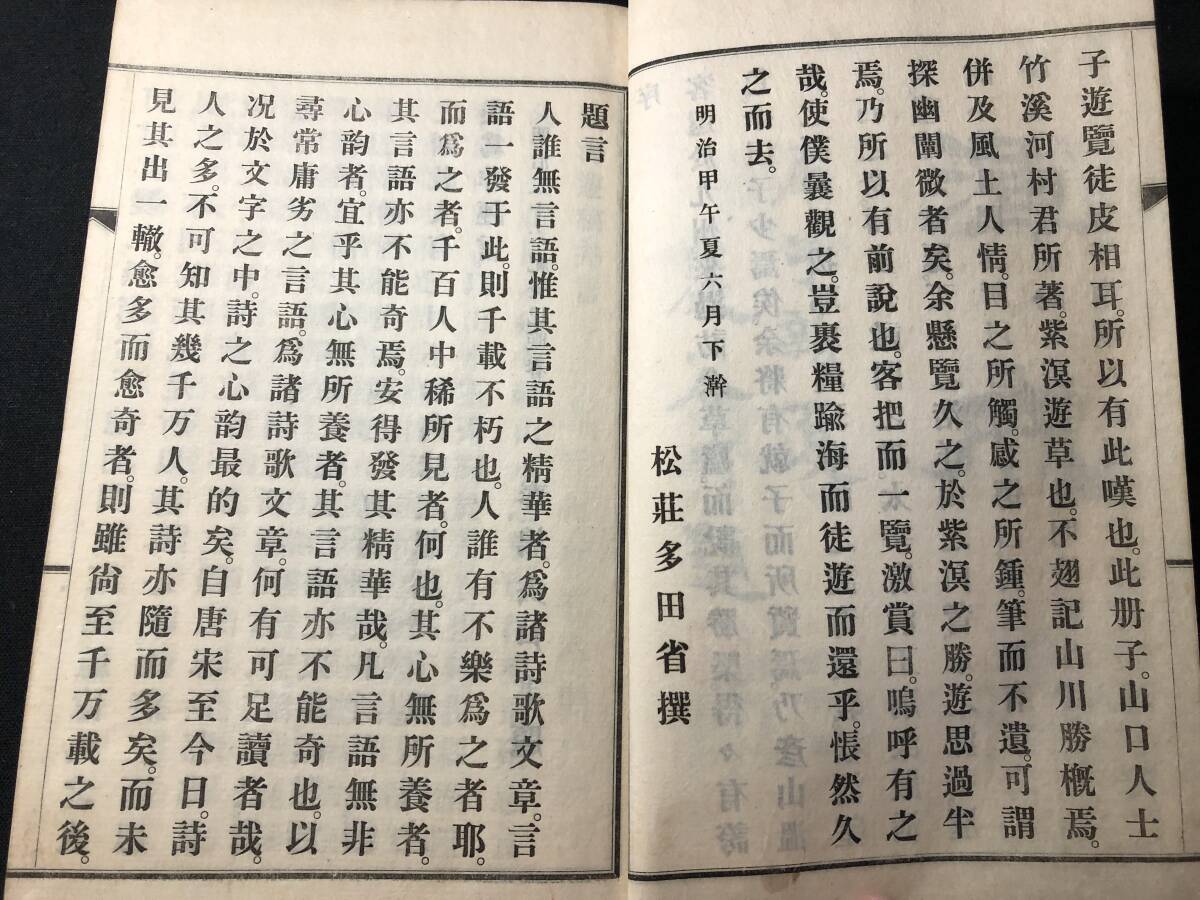 子遊覽徒皮相耳。所以有此嘆也。此册子。山口人士
竹溪河村君所著。紫溟遊草也。不翅記山川勝概焉。
併及風土人情。目之所觸。感之所鍾。筆而不遺。可謂
探幽闡微者矣。余懸覽久之。於紫溟之勝。遊思過半
焉。乃所以有前說也。客把而一覽。激賞曰。嗚呼有之
哉。使僕曩觀之。豈裹糧踰海而徒遊而還乎。悵然久
之而去。
明治甲午夏六月下澣
松莊多田省撰
題言
人誰無言語。惟其言語之精華者。爲諸詩歌文章。言
語一發于此。則千載不朽也。人誰有不樂爲之者耶。
而爲之者。千百人中稀所見者。何也。其心無所養者。
其言語亦不能奇焉。安得發其精華哉。凡言語無非
心韵者。宜乎其心無所養者。其言語亦不能奇也。以
尋常庸劣之言語。爲諸詩歌文章。何有可足讀者哉。
况於文字之中。詩之心韵最的矣。自唐宋至今日。詩
人之多。不可知其幾千万人。其詩亦隨而多矣。而未
見其出一轍。愈多而愈奇者。則雖尙至千万載之後。